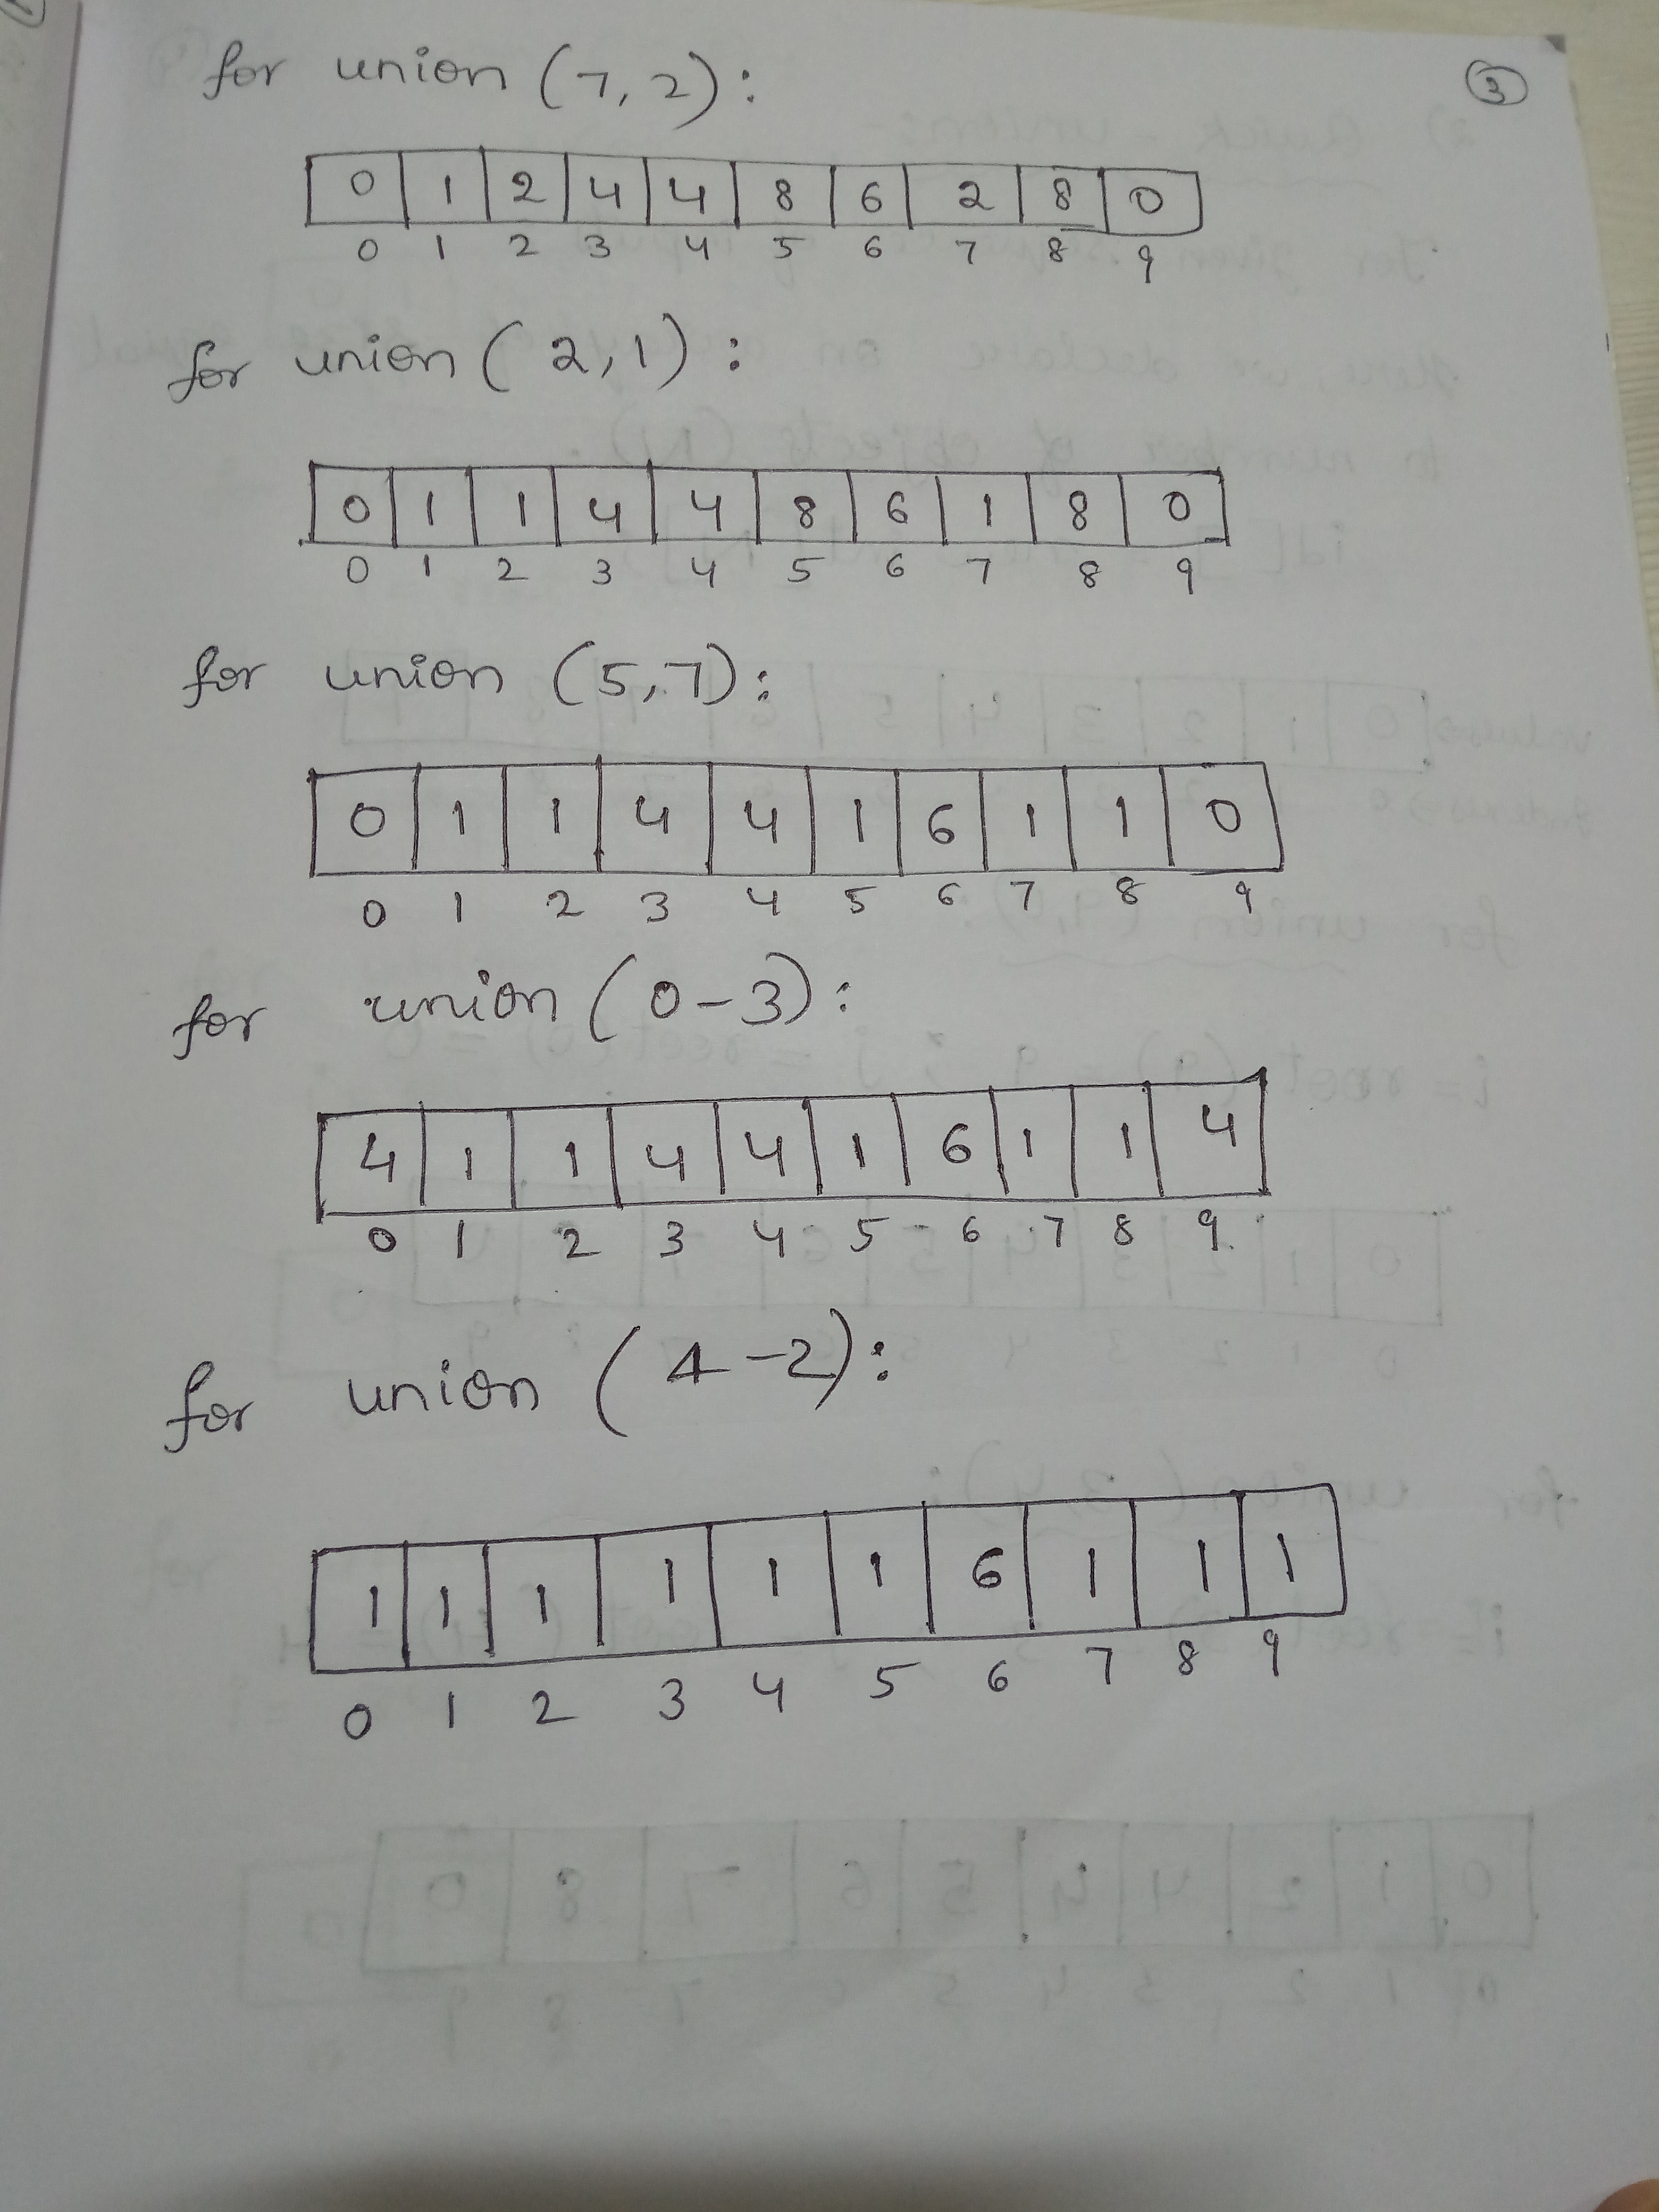 for union (7,2):
③
0 1 2 4 4 8 6 2 8 0
0 1 2 3 4 5 6 7 8 9
for union (2,1):
0 1 1 4 4 8 6 1 8 0
0 1 2 3 4 5 6 7 8 9
for union (5,7):
0 1 1 4 4 1 6 1 1 0
0 1 2 3 4 5 6 7 8 9
for union (0-3):
4 1 1 4 4 1 6 1 1 4
0 1 2 3 4 5 6 7 8 9
for union (4-2):
1 1 1 1 1 1 6 1 1 1
0 1 2 3 4 5 6 7 8 9